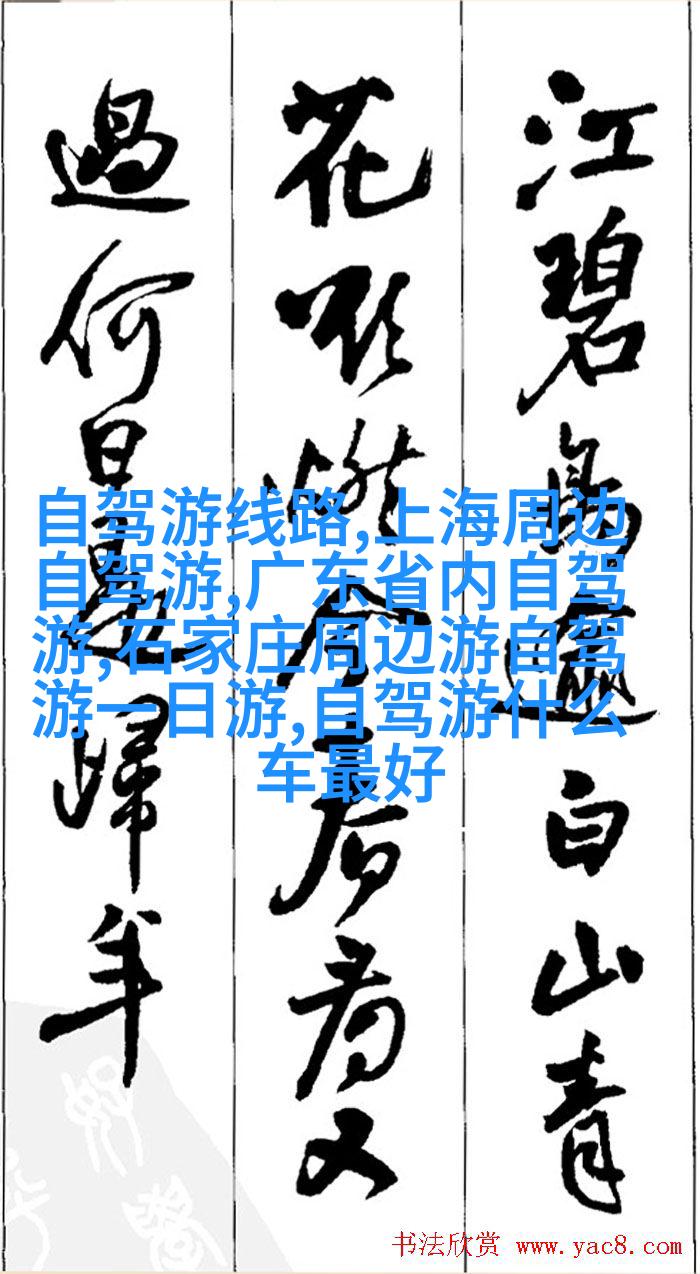 江碧鳥逾白山青
花欲燃今春看又
過何日是歸年
自驾游线路,上海周边
自驾游,广东省内自驾
游,石家庄周边游自驾
游一日游,自驾游什么
车最好
书法欣赏 www.yac8.com